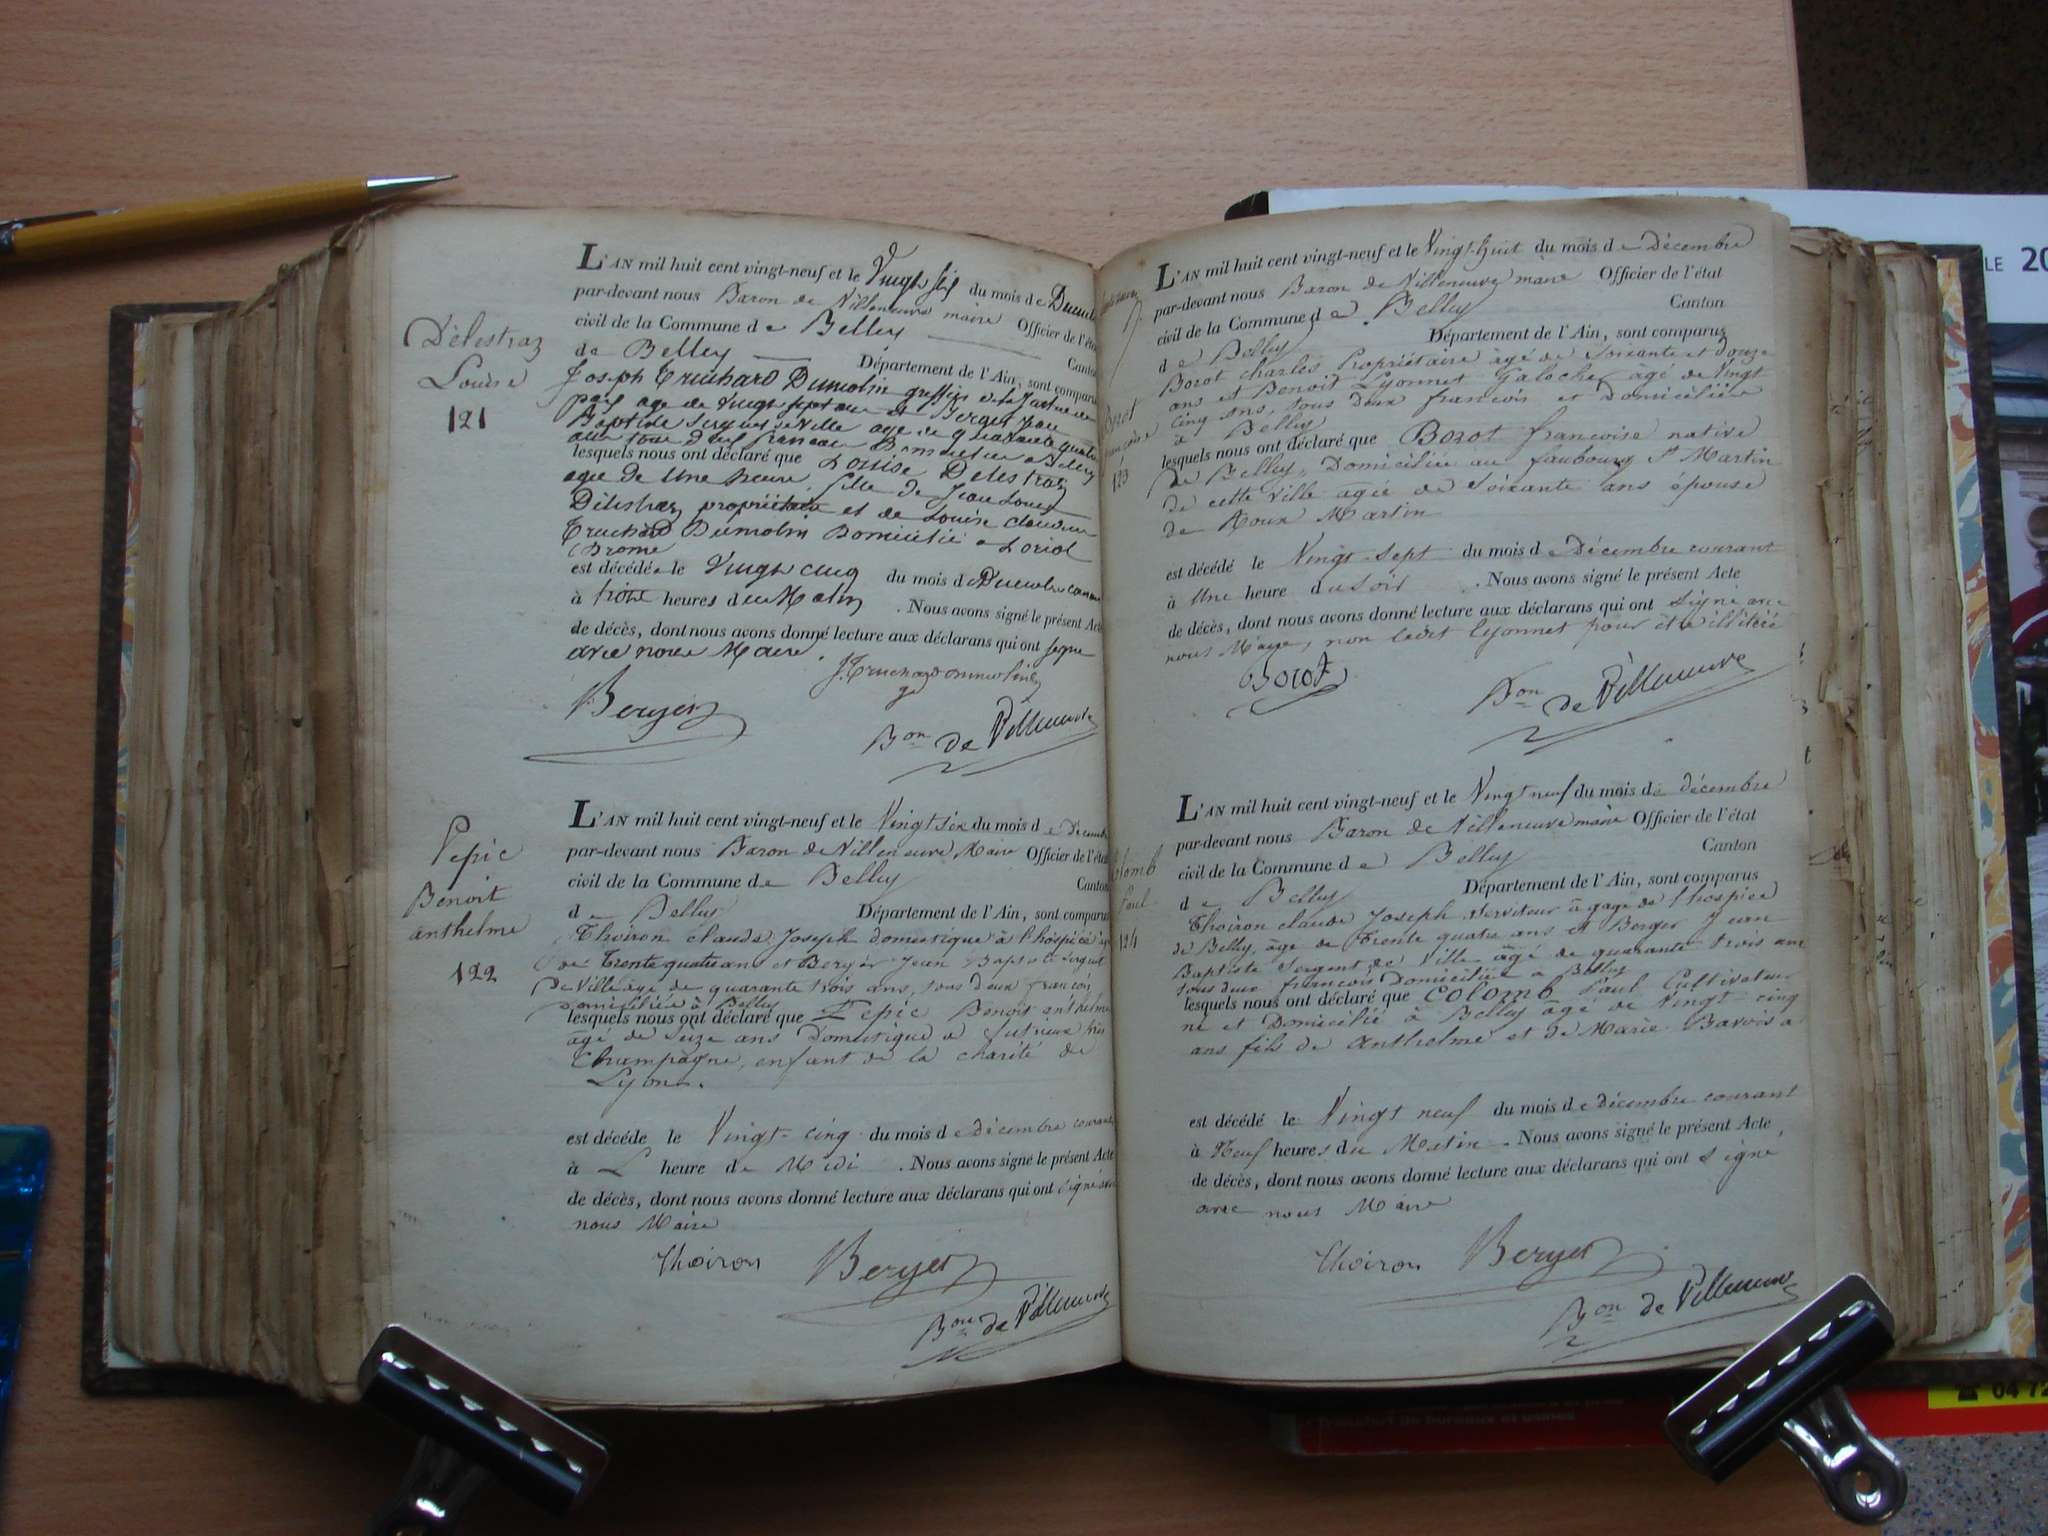 Délestraz
Louise
121
L'AN mil huit cent vingt-neuf et le Vingt six du mois de
par-devant nous Baron de Villeneuve maire Officier de l'état
civil de la Commune de Belley Canton
de Belley Département de l'Ain, sont comparus
Joseph Truchard Dumolin greffier de la Justice de
paix age de Vingt sept ans et Berger Jean
Baptiste Sergent de Ville age de quarante quatre
lesquels nous ont déclaré que Louise Delestraz
agée de Une heure, fille de Jean Louis
Délestraz propriétaire et de Louise
Truchard Dumolin Domicilié a Loriol
Drome
est décédée le Vingt cinq du mois de Decembre
à trois heures du Matin . Nous avons signé le présent Acte
de décès, dont nous avons donné lecture aux déclarans qui ont signé
avec nous Maire
J. Truchard Dumolin
Berger
Bon de Villeneuve
Pepic
Benoit
anthelme
122
L'AN mil huit cent vingt-neuf et le Vingt six du mois de Décembre
par-devant nous Baron de Villeneuve Maire Officier de l'état
civil de la Commune de Belley Canton
de Belley Département de l'Ain, sont comparus
Thoiron claude Joseph domestique à l'hospice
de Trente quatre ans et Berger Jean Baptiste Sergent
De Ville âgé de quarante trois ans, tous deux françois
Domiciliés à Belley
lesquels nous ont déclaré que Pepic Benoit anthelme
âgé de Seize ans Domestique a
Champagne, enfant de la charité de
Lyon.
est décédé le Vingt-cinq du mois de Décembre courant
à L heure de Midi . Nous avons signé le présent Acte
de décès, dont nous avons donné lecture aux déclarans qui ont signé avec
nous Maire
Thoiron Berger
Bon de Villeneuve
Bozot
123
L'AN mil huit cent vingt-neuf et le Vingt-huit du mois de Décembre
par-devant nous Baron de Villeneuve maire Officier de l'état
civil de la Commune de Belley Canton
de Belley Département de l'Ain, sont comparus
Bozot charles Propriétaire âgé de Soixante et Douze
ans et Benoit Lyonnet Galocher âgé de Vingt
cinq ans, tous deux françois et Domiciliés
à Belley
lesquels nous ont déclaré que Bozot françoise native
de Belley, Domiciliée au faubourg St Martin
de cette Ville agée de Soixante ans épouse
de Roux Martin
est décédé le Vingt-sept du mois de Décembre courant
à Une heure du soir . Nous avons signé le présent Acte
de décès, dont nous avons donné lecture aux déclarans qui ont signé avec
nous Maire, non ledit Lyonnet pour être illitéré
Bozot
Bon de Villeneuve
Colomb
Paul
124
L'AN mil huit cent vingt-neuf et le Vingt neuf du mois de décembre
par-devant nous Baron de Villeneuve maire Officier de l'état
civil de la Commune de Belley Canton
de Belley Département de l'Ain, sont comparus
Thoiron claude Joseph Serviteur à gage de l'hospice
de Belley, âgé de Trente quatre ans et Berger Jean
Baptiste Sergent de Ville âgé de quarante trois ans
tous deux françois Domiciliés a Belley
lesquels nous ont déclaré que Colomb Paul Cultivateur
né et Domicilié à Belley âgé de Vingt-cinq
ans fils de anthelme et de Marie
est décédé le Vingt neuf du mois de décembre courant
à Neuf heures du Matin . Nous avons signé le présent Acte
de décès, dont nous avons donné lecture aux déclarans qui ont signé
avec nous Maire
Thoiron Berger
Bon de Villeneuve
LE 20
04 72